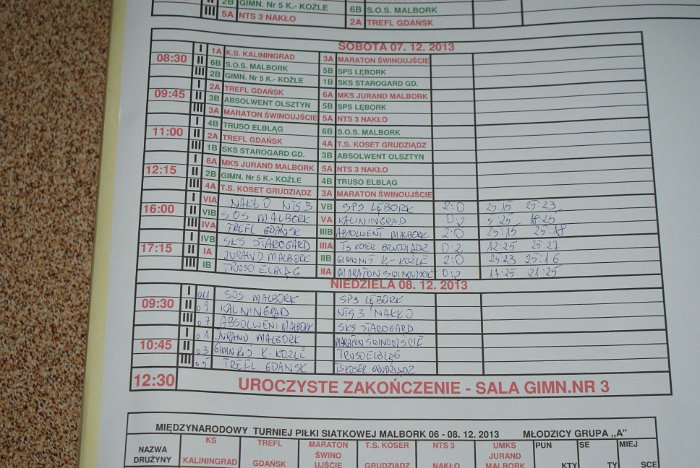 II 2B GIMN. Nr 5 K.- KOŹLE 6B S.O.S. MALBORK
III 5A NTS 3 NAKŁO 2A TREFL GDAŃSK
SOBOTA 07. 12. 2013
08:30 I 1A K.S. KALININGRAD 3A MARATON ŚWINOUJŚCIE
II 6B S.O.S. MALBORK 5B SPS LĘBORK
III 2B GIMN. Nr 5 K.- KOŹLE 1B SKS STAROGARD GD.
09:45 I 2A TREFL GDAŃSK 6A MKS JURAND MALBORK
II 3B ABSOLWENT OLSZTYN 5B SPS LĘBORK
III 3A MARATON ŚWINOUJŚCIE 5A NTS 3 NAKŁO
11:00 I 4B TRUSO ELBLĄG 6B S.O.S. MALBORK
II 2A TREFL GDAŃSK 4A T.S. KOSET GRUDZIĄDZ
III 1B SKS STAROGARD GD. 3B ABSOLWENT OLSZTYN
12:15 I 6A MKS JURAND MALBORK 5A NTS 3 NAKŁO
II 2B GIMN. Nr 5 K.- KOŹLE 4B TRUSO ELBLĄG
III 4A T.S. KOSET GRUDZIĄDZ 3A MARATON ŚWINOUJŚCIE
16:00 I VIA NAKŁO NTS 3 VB SPS LĘBORK 2:0 25:15 25:23
II VIB SOS MALBORK VA KALININGRAD 0:2
III IVA TREFL GDAŃSK IIIB ABSOLWENT MALBORK 2:0 25:15 25:18
17:15 I IVB SKS STAROGARD IIIA TS KOSER GRUDZIĄDZ 0:2
II IA JURAND MALBORK IIB GIMN NR5 K-KOŹLE 2:0 25:23 25:16
III IB TRUSO ELBLĄG IIA MARATON ŚWINOUJŚCIE 0:2 21:25
NIEDZIELA 08. 12. 2013
09:30 I SOS MALBORK SPS LĘBORK
II 09 KALININGRAD NTS 3 NAKŁO
III 07 ABSOLWENT MALBORK SKS STAROGARD
10:45 I 01 JURAND MALBORK MARATON ŚWINOUJŚCIE
II 03 GIMN NR 5 K-KOŹLE TRUSO ELBLĄG
III 05 TREFL GDAŃSK TS KOSER GRUDZIĄDZ
12:30 UROCZYSTE ZAKOŃCZENIE - SALA GIMN.NR 3
MIĘDZYNARODOWY TURNIEJ PIŁKI SIATKOWEJ MALBORK 06 - 08. 12. 2013 MŁODZICY GRUPA „A"
NAZWA DRUŻYNY KS KALININGRAD TREFL GDAŃSK MARATON ŚWINO UJŚCIE T.S. KOSER GRUDZIĄDZ NTS 3 NAKŁO UMKS JURAND MALBORK PUN KTY SE TY MIEJ SCE